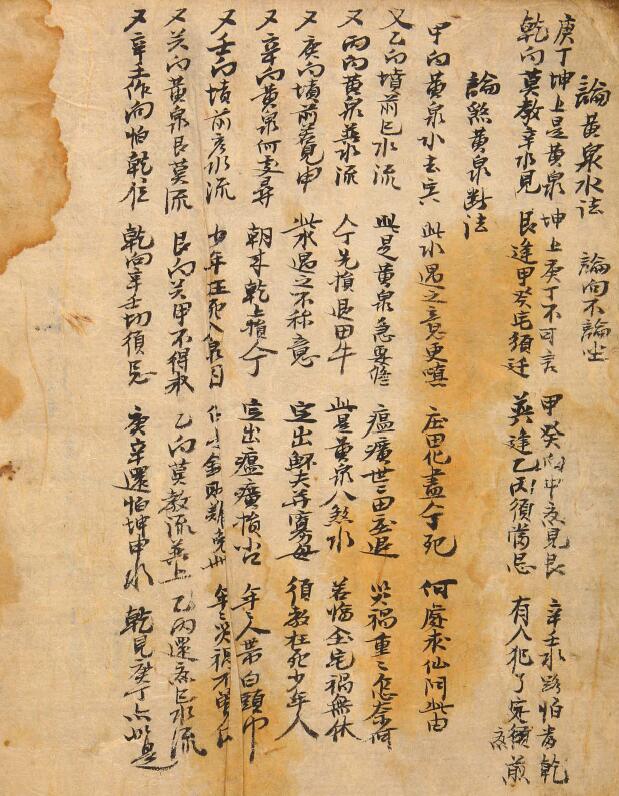 論黃泉水法　論向不論坐
庚丁坤上是黃泉　坤上庚丁不可言　甲癸向中夜見艮　辛壬水路怕當乾
乾向莫教辛水見　艮逢甲癸宅須迁　巽逢乙丙須當忌　有人犯了定須煎
論煞黃泉對法
甲向黃泉水去寅　此水遇之意更嗔　庄田化盡人亡死　何處求仙问此由
又乙向墳前巳水流　此是黃泉急要　瘟癀世二田至退　災禍重二怎奈何
又丙向黃泉巽水流　人亡先損退田牛　此是黃泉八煞水　若悔全宅禍無休
又庚向墳前若見申　此水遇之不称意　定出鰥夫并寡母　須教枉死少年人
又辛向黃泉何處尋　朝來乾上損人　定出瘟癀損　年二人帶白頭巾
又壬向墳前亥水流　少年枉死入泉　年二災禍不
又癸向黃泉艮莫流　艮向癸甲不得水　乙向莫教流巽上　乙丙還病巳水流
又辛壬作向怕乾位　乾向辛壬切須忌　庚辛還怕坤申水　乾見庚丁亦如是